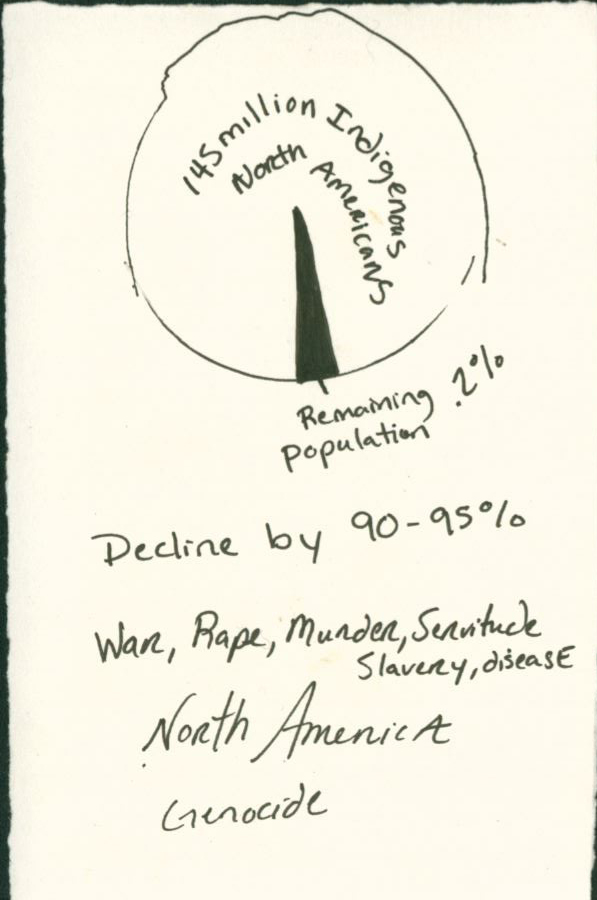 145 million Indigenous
North Americans
Remaining .2%
population
Decline by 90-95%
War, Rape, Murder, Servitude
Slavery, disease
North America
Genocide